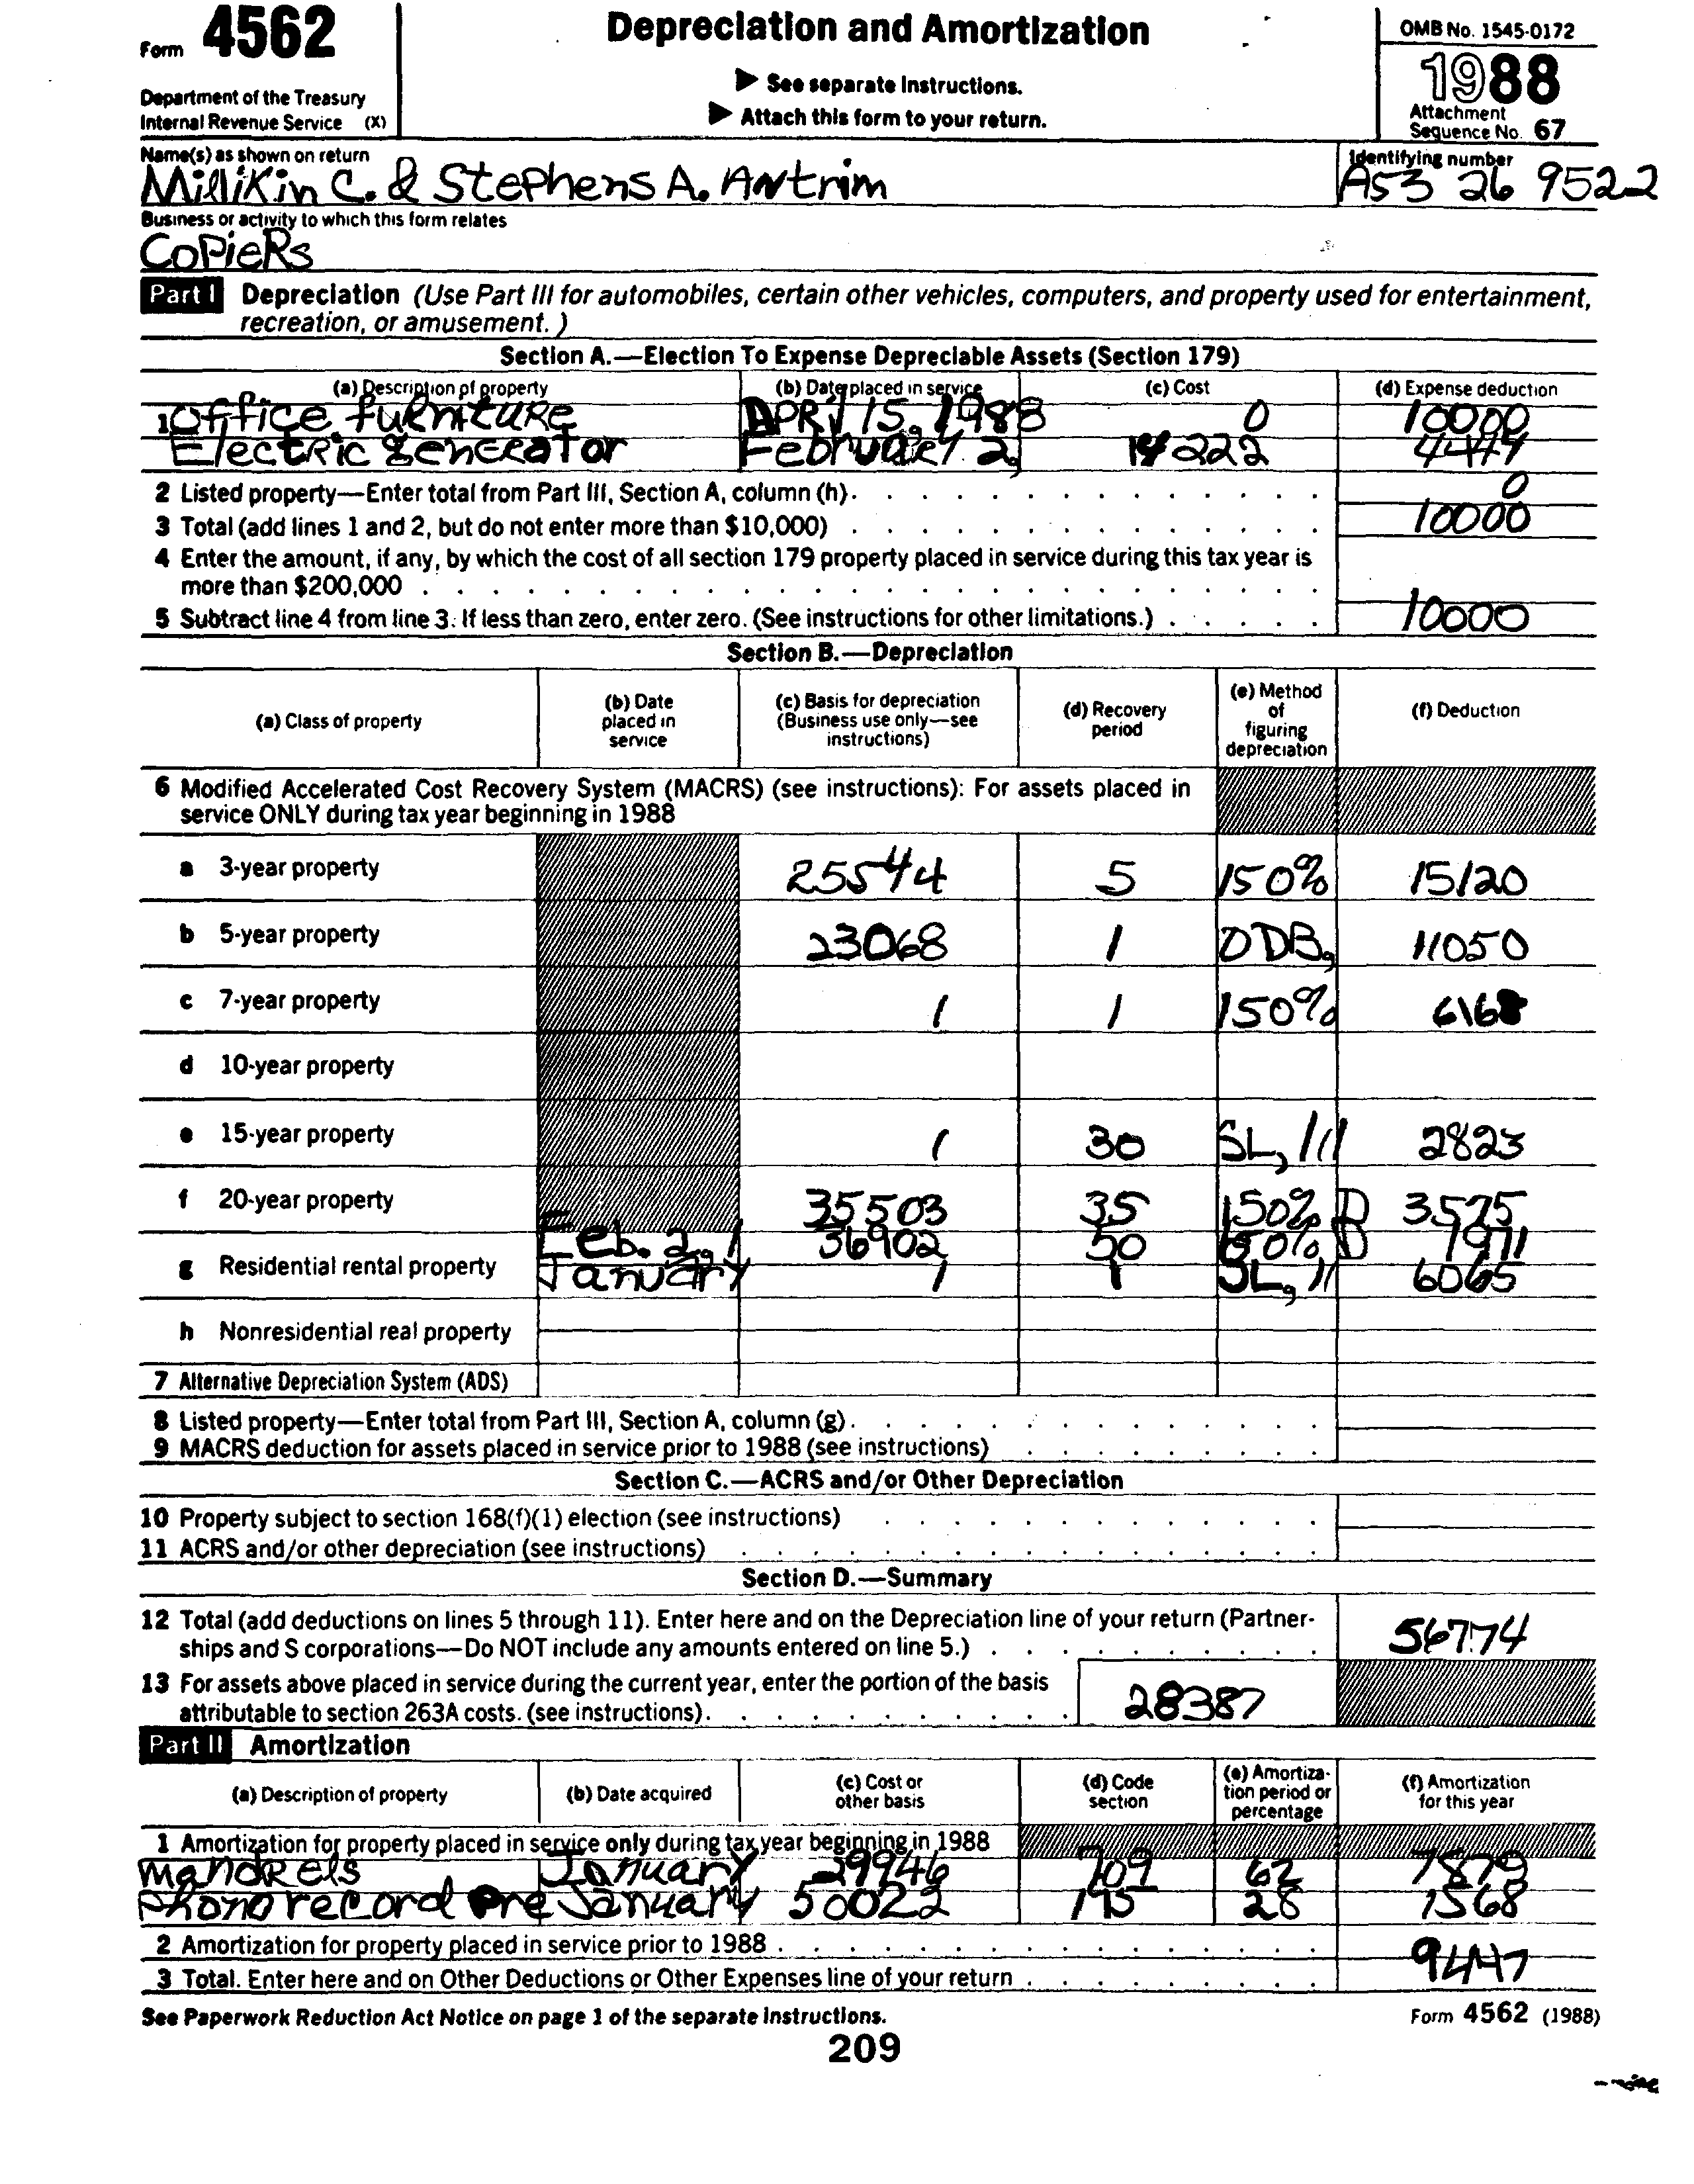 Form 4562
Department of the Treasury
Internal Revenue Service (X)
Depreciation and Amortization
▶ See separate Instructions.
▶ Attach this form to your return.
OMB No. 1545-0172
1988
Attachment
Sequence No. 67
Name(s) as shown on return
Millikin C. & Stephens A. Antrim
Identifying number
A53 26 9522
Business or activity to which this form relates
Copiers
Part I Depreciation (Use Part III for automobiles, certain other vehicles, computers, and property used for entertainment,
recreation, or amusement.)
Section A.—Election To Expense Depreciable Assets (Section 179)
(a) Description of property (b) Date placed in service (c) Cost (d) Expense deduction
1 Office furniture April 15, 1988 0 10000
Electric generator February 2, 14222 4449
2 Listed property—Enter total from Part III, Section A, column (h). 0
3 Total (add lines 1 and 2, but do not enter more than $10,000) 10000
4 Enter the amount, if any, by which the cost of all section 179 property placed in service during this tax year is
more than $200,000
5 Subtract line 4 from line 3. If less than zero, enter zero. (See instructions for other limitations.) 10000
Section B.—Depreciation
(a) Class of property (b) Date placed in service (c) Basis for depreciation (Business use only—see instructions) (d) Recovery period (e) Method of figuring depreciation (f) Deduction
6 Modified Accelerated Cost Recovery System (MACRS) (see instructions): For assets placed in
service ONLY during tax year beginning in 1988
a 3-year property 25544 5 150% 15120
b 5-year property 23068 1 DDB, 11050
c 7-year property 1 1 150% 6168
d 10-year property
e 15-year property 1 30 SL, 2823
f 20-year property 35503 35 150% D 3575
Feb. 2, 1 36902 50 150% D 1971
g Residential rental property January 1 1 SL, 6065
h Nonresidential real property
7 Alternative Depreciation System (ADS)
8 Listed property—Enter total from Part III, Section A, column (g).
9 MACRS deduction for assets placed in service prior to 1988 (see instructions)
Section C.—ACRS and/or Other Depreciation
10 Property subject to section 168(f)(1) election (see instructions)
11 ACRS and/or other depreciation (see instructions)
Section D.—Summary
12 Total (add deductions on lines 5 through 11). Enter here and on the Depreciation line of your return (Partner-
ships and S corporations—Do NOT include any amounts entered on line 5.) 56774
13 For assets above placed in service during the current year, enter the portion of the basis
attributable to section 263A costs. (see instructions). 28387
Part II Amortization
(a) Description of property (b) Date acquired (c) Cost or other basis (d) Code section (e) Amortiza-tion period or percentage (f) Amortization for this year
1 Amortization for property placed in service only during tax year beginning in 1988
Mandrels January 29946 709 62 7879
Phonorecord pre January 50022 195 28 1568
2 Amortization for property placed in service prior to 1988
3 Total. Enter here and on Other Deductions or Other Expenses line of your return 9447
See Paperwork Reduction Act Notice on page 1 of the separate Instructions.
Form 4562 (1988)
209